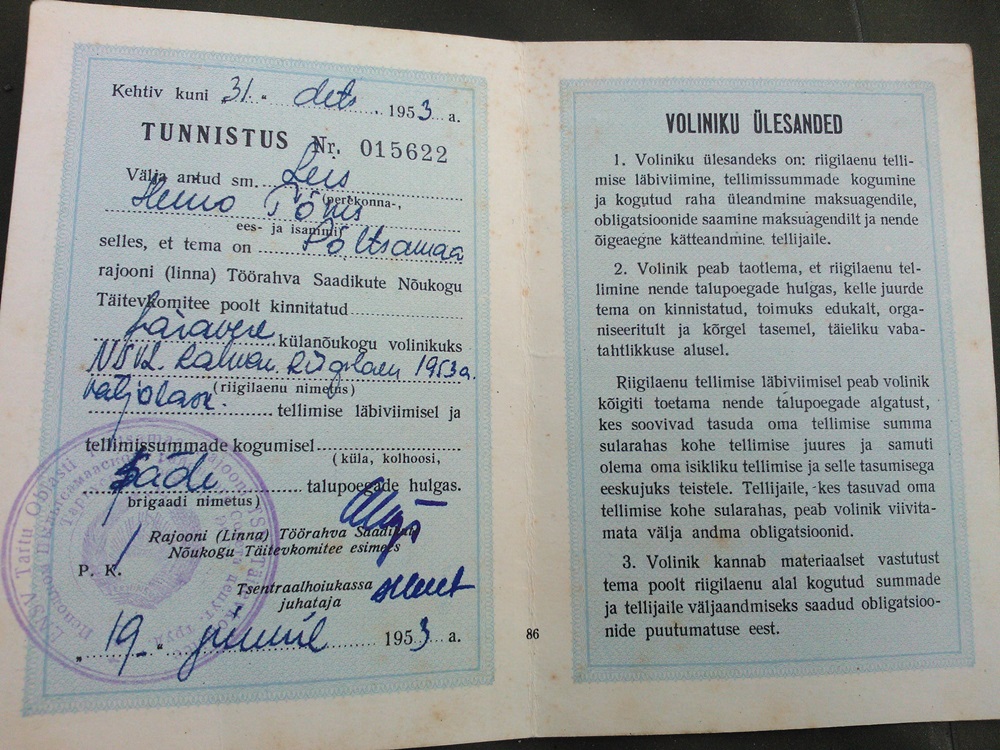 Kehtiv kuni 31. dets. 1953 a.
TUNNISTUS Nr. 015622
Välja antud sm. Leis
(perekonna-,
Heino Tõnis
ees- ja isanimi)
selles, et tema on Põltsamaa
rajooni (linna) Töörahva Saadikute Nõukogu
Täitevkomitee poolt kinnitatud
külanõukogu volinikuks
NSVL Rahvam. Riigilaen 1953a.
(riigilaenu nimetus)
väljalase. tellimise läbiviimisel ja
tellimissummade kogumisel
(küla, kolhoosi,
Säde talupoegade hulgas.
brigaadi nimetus)
Rajooni (Linna) Töörahva Saadikute
Nõukogu Täitevkomitee esimees
P. K.
Tsentraalhoiukassa
juhataja
„19.“ juunil 1953 a.
ENSV Tartu Oblasti
86
VOLINIKU ÜLESANDED
1. Voliniku ülesandeks on: riigilaenu telli-
mise läbiviimine, tellimissummade kogumine
ja kogutud raha üleandmine maksuagendile,
obligatsioonide saamine maksuagendilt ja nende
õigeaegne kätteandmine tellijaile.
2. Volinik peab taotlema, et riigilaenu tel-
limine nende talupoegade hulgas, kelle juurde
tema on kinnistatud, toimuks edukalt, orga-
niseeritult ja kõrgel tasemel, täieliku vaba-
tahtlikkuse alusel.
Riigilaenu tellimise läbiviimisel peab volinik
kõigiti toetama nende talupoegade algatust,
kes soovivad tasuda oma tellimise summa
sularahas kohe tellimise juures ja samuti
olema oma isikliku tellimise ja selle tasumisega
eeskujuks teistele. Tellijaile, kes tasuvad oma
tellimise kohe sularahas, peab volinik viivita-
mata välja andma obligatsioonid.
3. Volinik kannab materiaalset vastutust
tema poolt riigilaenu alal kogutud summade
ja tellijaile väljaandmiseks saadud obligatsioo-
nide puutumatuse eest.